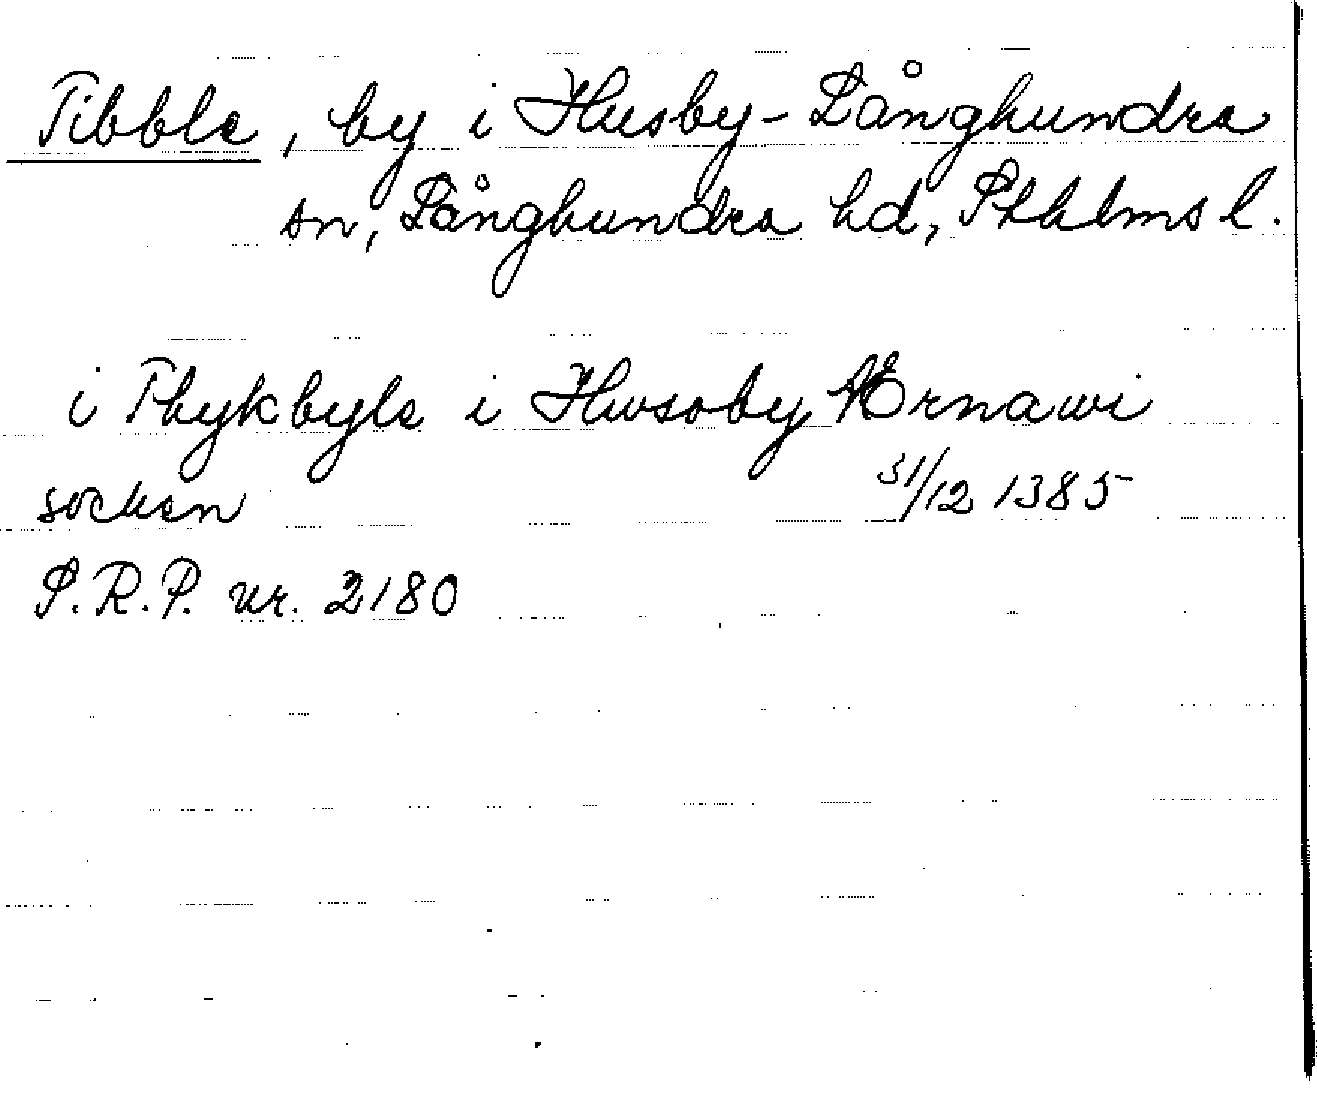 Tibble, by i Husby-Långhundra
sn, Långhundra hd, Sthlms l.
i Thykbyle i Hwsoby Ærnawi
socken 31/12 1385
S.R.P. nr. 2180